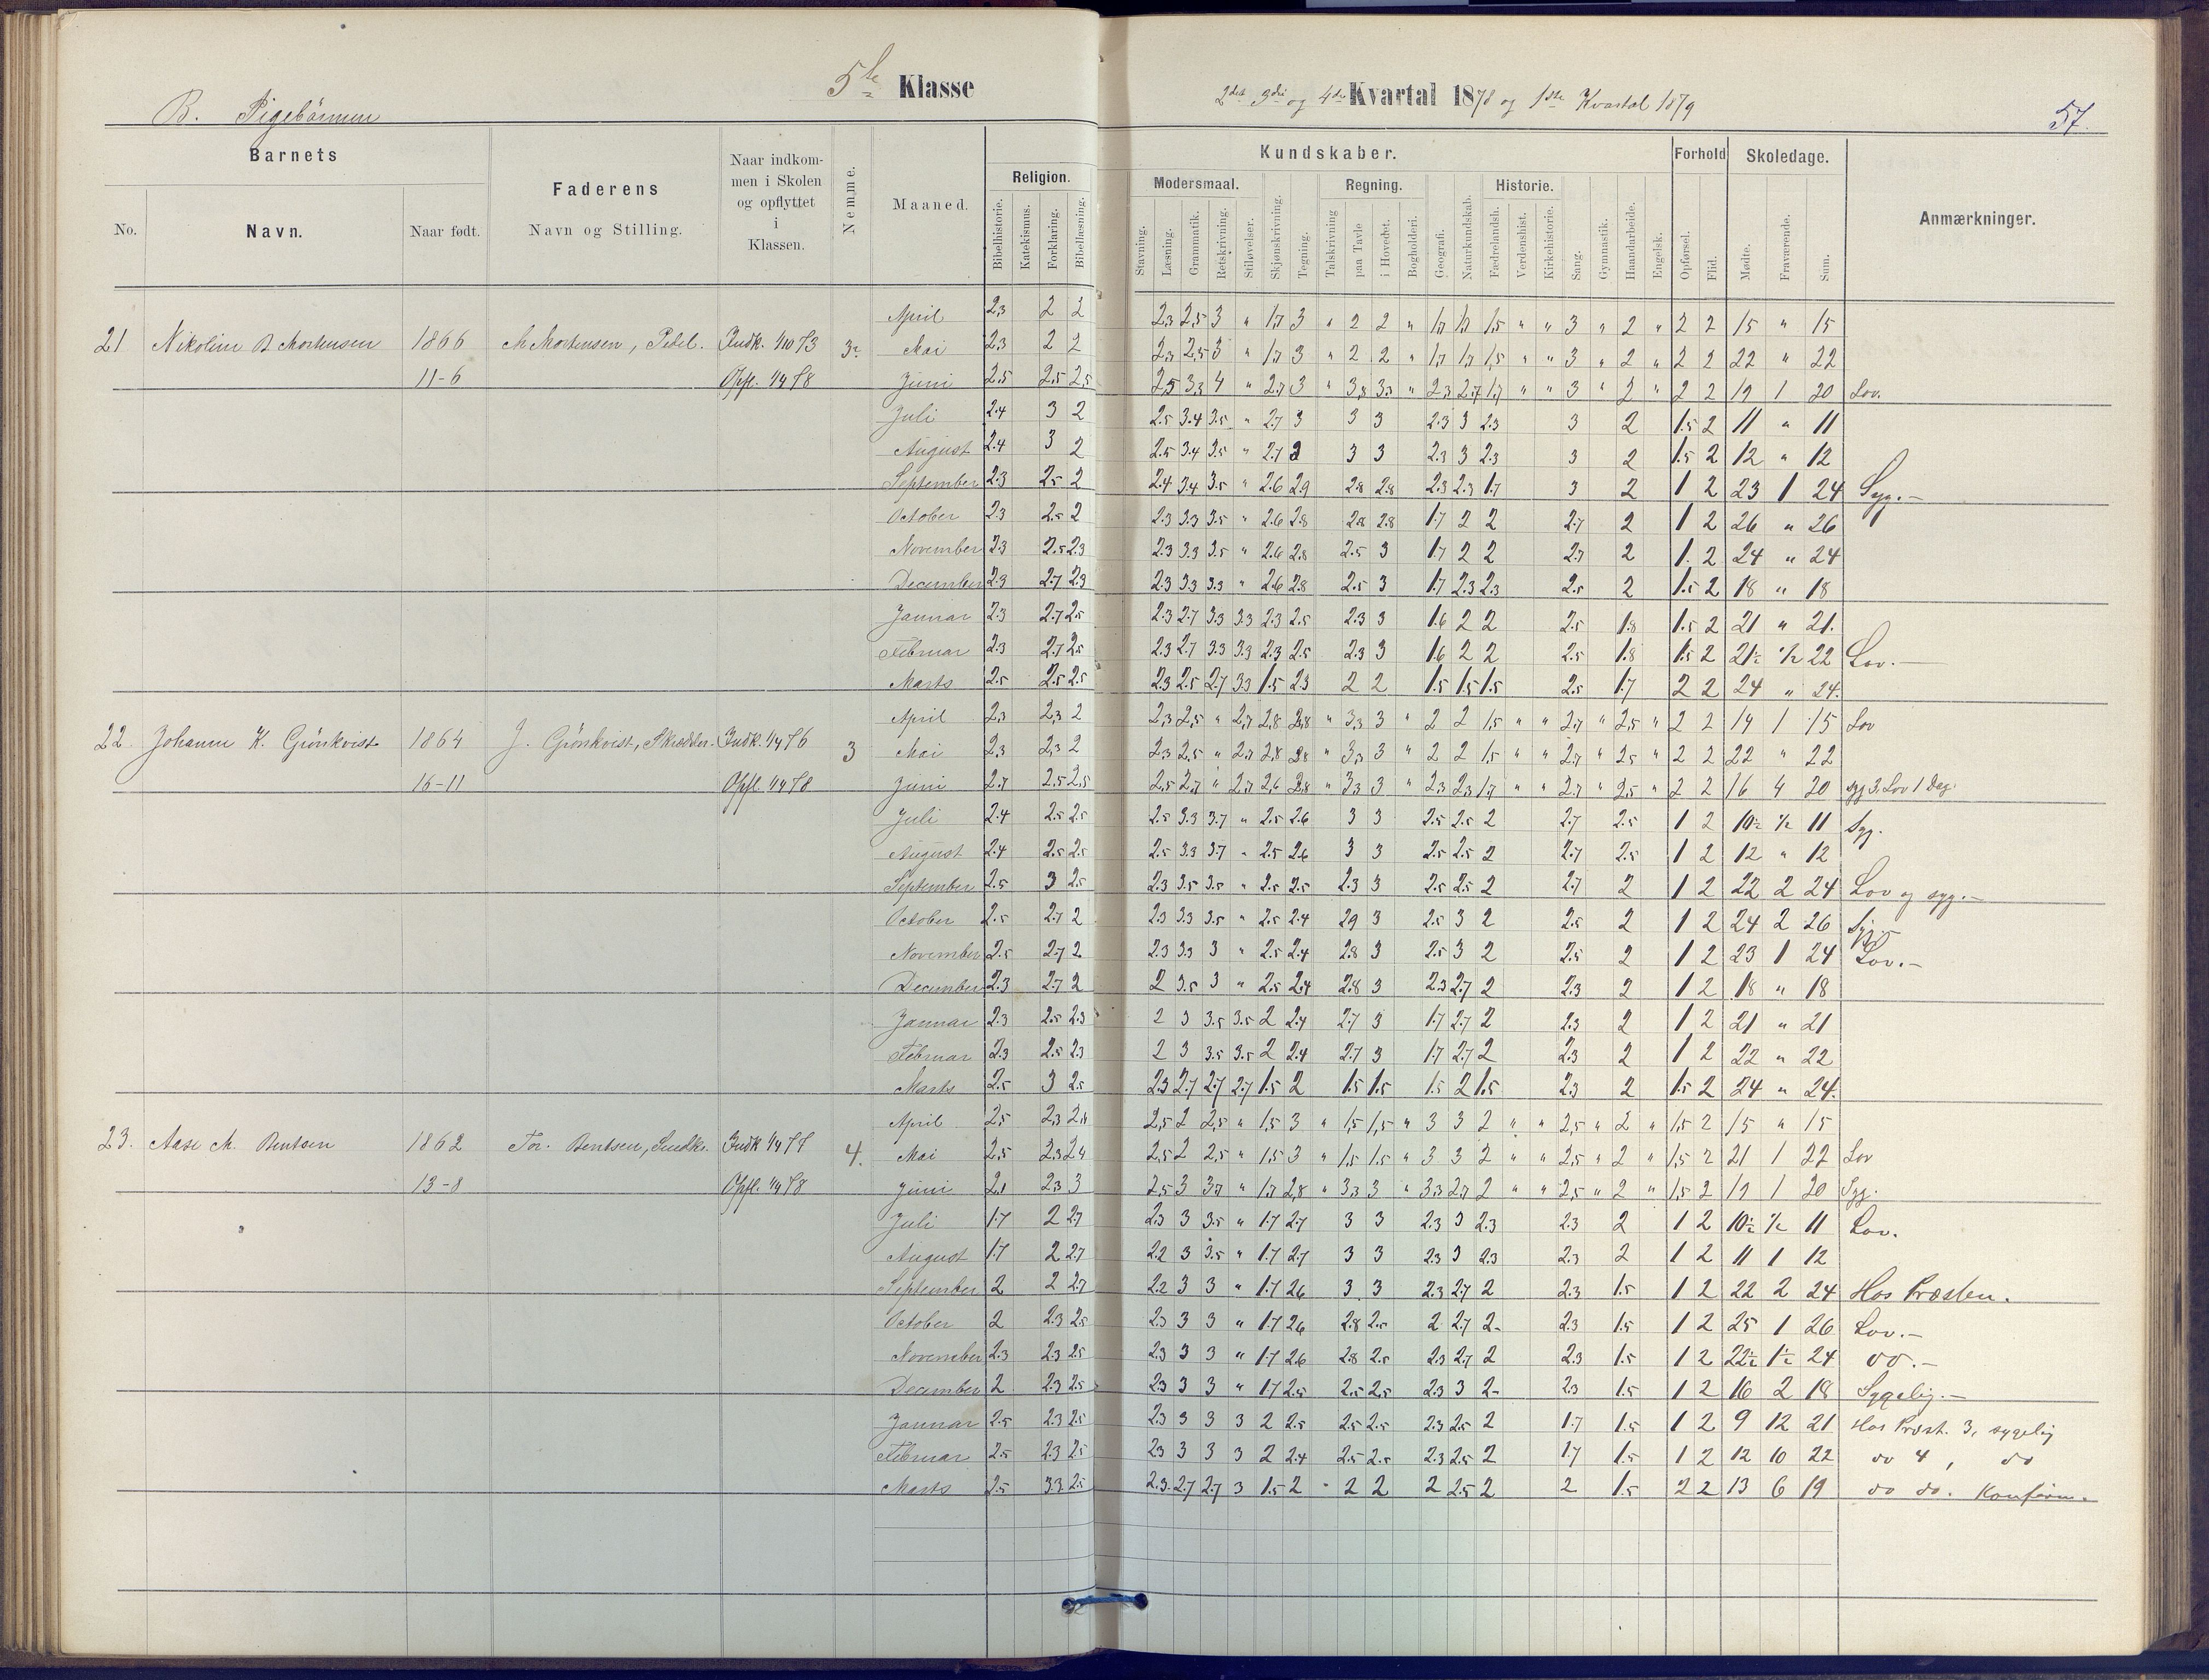 5te Klasse
2det 3die og 4de Kvartal 1878 og 1ste Kvartal 1879
B. Pigebörnene
57.
Barnets
No.
Navn.
Naar født.
Faderens
Navn og Stilling.
Naar indkom-
men i Skolen
og opflyttet
i
Klassen.
Nemme.
Maaned.
Religion.
Bibelhistorie.
Katekismus.
Forklaring.
Bibellæsning.
Kundskaber.
Modersmaal.
Stavning.
Læsning.
Grammatik.
Retskrivning.
Stiløvelser.
Skjønskrivning.
Tegning.
Regning.
Talskrivning
paa Tavle
i Hovedet.
Bogholderi.
Geografi.
Naturkundskab.
Historie.
Fædrelandsh.
Verdenshist.
Kirkehistorie.
Sang.
Gymnastik.
Haandarbeide.
Engelsk.
Forhold
Opførsel.
Flid.
Skoledage.
Mødte.
Fraværende.
Sum.
Anmærkninger.
April 2,3 2 2 2,3 2,5 3 " 1,7 3 " 2 2 " 1,7 1,7 1,5 " " 3 " 2 " 2 2 15 " 15
21 Nikoline B Mortensen 1866 M Mortensen, Pedel. Indk. 1/10 73 Mai 2,3 2 2 2,3 2,5 3 " 1,7 3 " 2 2 " 1,7 1,7 1,5 " " 3 " 2 " 2 2 22 " 22
11-6 Opfl. 1/4 78 Juni 2.5 2,5 2,5 2,5 3,3 4 " 2,7 3 " 3,3 3,3 " 2,3 2,7 1,7 " " 3 " 2 " 2 2 19 1 20 Lov.
Juli 2.4 3 2 2.5 3.4 3.5 " 2.7 3 3 3 2.3 3 2.3 3 2 1.5 2 11 " 11
August 2.4 3 2 2.5 3.4 3.5 " 2.7 3 3 3 2.3 3 2.3 3 2 1.5 2 12 " 12
September 2.3 2.5 2 2.4 3.4 3.5 " 2.6 2.9 2.8 2.8 2.3 2.3 1.7 3 2 1 2 23 1 24 Syg.-
October 2.3 2.5 2 2.3 3.3 3.5 " 2.6 2.8 2.8 2.8 1.7 2 2 2.7 2 1 2 26 " 26
November 2.3 2.5 2.3 2.3 3.3 3.5 " 2.6 2.8 2.5 3 1.7 2 2 2.7 2 1. 2 24 " 24
December 2.3 2.7 2.3 2.3 3.3 3.3 " 2.6 2.8 2.5 3 1.7 2.3 2.3 2.5 2 1.5 2 18 " 18
Januar 2.3 2.7 2.5 2.3 2.7 3.3 3.3 2.3 2.5 2.3 3 1.6 2 2 2.5 1.8 1.5 2 21 " 21.
Februar 2.3 2.7 2.5 2.3 2.7 3.3 3.3 2.3 2.5 2.3 3 1.6 2 2 2.5 1.8 1.5 2 21½ ½ 22 Lov.-
Marts 2.5 2.5 2.5 2.3 2.5 2.7 3.3 1.5 2.3 2 2 1.5 1.5 1.5 2.5 1.7 2 2 24 " 24.
April 2,3 2,3 2 2,3 2,5 " 2,7 2,8 2,8 " 3,3 3 " 2 2 1,5 " " 2,7 " 2,5 " 2 2 14 1 15 Lov
22. Johanne K. Grönkvist 1864 J. Grönkvist, Skrædder. Indk. 1/4 76 3 Mai 2,3 2,3 2 2,3 2,5 " 2,7 2,8 2,8 " 3,3 3 " 2 2 1,5 " " 2,7 " 2,5 " 2 2 22 " 22
16-11 Opfl. 1/4 78 Juni 2,7 2,5 2,5 2,5 2,7 " 2,7 2,6 2,8 " 3,3 3 " 2,3 2,3 1,7 " " 2,7 " 2,5 " 2 2 16 4 20 syg 3. Lov 1 Dag
Juli 2.4 2.5 2.5 2.5 3.3 3.7 " 2.5 2.6 3 3 2.5 2.5 2 2.7 2.5 1 2 10½ ½ 11 Syg.
August 2.4 2.5 2.5 2.5 3.3 3.7 " 2.5 2.6 3 3 2.5 2.5 2 2.7 2.5 1 2 12 " 12
September 2.5 3 2.5 2.3 3.5 3.5 " 2.5 2.5 2.3 3 2.5 2.5 2 2.7 2 1 2 22 2 24 Lov og syg.-
October 2.5 2.7 2 2.3 3.3 3.5 " 2.5 2.4 2.9 3 2.5 3 2 2.5 2 1 2 24 2 26 Syg.-
November 2.5 2.7 2 2.3 3.3 3 " 2.5 2.4 2.8 3 2.5 3 2 2.5 2 1 2 23 1 24 Lov.-
December 2.3 2.7 2 2 3.5 3 " 2.5 2.4 2.8 3 2.3 2.7 2 2.3 2 1 2 18 " 18
Januar 2.3 2.5 2.3 2 3 3.5 3.5 2 2.4 2.7 3 1.7 2.7 2 2.3 2 1 2 21 " 21
Februar 2.3 2.5 2.3 2 3 3.5 3.5 2 2.4 2.7 3 1.7 2.7 2 2.3 2 1 2 22 " 22
Marts 2.5 3 2.5 2.3 2.7 2.7 2.7 1.5 2 1.5 1.5 1.5 2 1.5 2.3 2 1.5 2 24 " 24.
April 2,5 2,3 2,4 2,5 2 2,5 " 1,5 3 " 1,5 1,5 " 3 3 2 " " 2,5 " 2 " 1,5 2 15 " 15
23. Aase M. Bentsen 1862 Tor. Bentsen, Indk 1/4 77 4. Mai 2,5 2,3 2,4 2,5 2 2,5 " 1,5 3 " 1,5 1,5 " 3 3 2 " " 2,5 " 2 " 1,5 2 21 1 22 Lov
13-8 Opfl. 1/4 78 Juni 2,1 2,3 3 2,5 3 3,7 " 1,7 2,8 " 3,3 3 " 3,3 2,7 2 " " 2,5 " 2 " 1,5 2 19 1 20 Syg.
Juli 1.7 2 2.7 2.3 3 3.5 " 1.7 2.7 3 3 2.3 3 2.3 2.3 2 1 2 10½ ½ 11 Lov.
August 1.7 2 2.7 2.2 3 3.5 " 1.7 2.7 3 3 2.3 3 2.3 2.3 2 1 2 11 1 12
September 2 2 2.7 2.2 3 3 " 1.7 2.6 3 3 2.3 2.7 2 2.3 1.5 1 2 22 2 24 Hos Præsten.
October 2 2.3 2.5 2.3 3 3 " 1.7 2.6 2.8 2.5 2 2.7 2- 2.3 1.5 1 2 25 1 26 Lov.-
November 2.3 2.3 2.5 2.3 3 3 " 1.7 2.6 2.8 2.5 2.3 2.7 2 2.3 1.5 1 2 22½ 1½ 24 do.-
December 2 2.3 2.5 2.3 3 3 " 1.7 2.5 2.5 2.5 2.3 3 2- 2.3 1.5 1 2 16 2 18 Sygelig.-
Januar 2.5 2.3 2.5 2.3 3 3 3 2 2.5 2.5 2.5 2.3 2.5 2 1.7 1.5 1 2 9 12 21 Hos Præst. 3, sygelig
Februar 2.5 2.3 2.5 2.3 3 3 3 2 2.4 2.5 2.5 2.3 2.5 2 1.7 1.5 1 2 12 10 22 do 4, do
Marts 2.5 3.3 2.5 2.3. 2.7 2.7 3 1.5 2 - 2 2 2 2.5 2 2 1.5 2 2 13 6 19 do do. Konfirm.